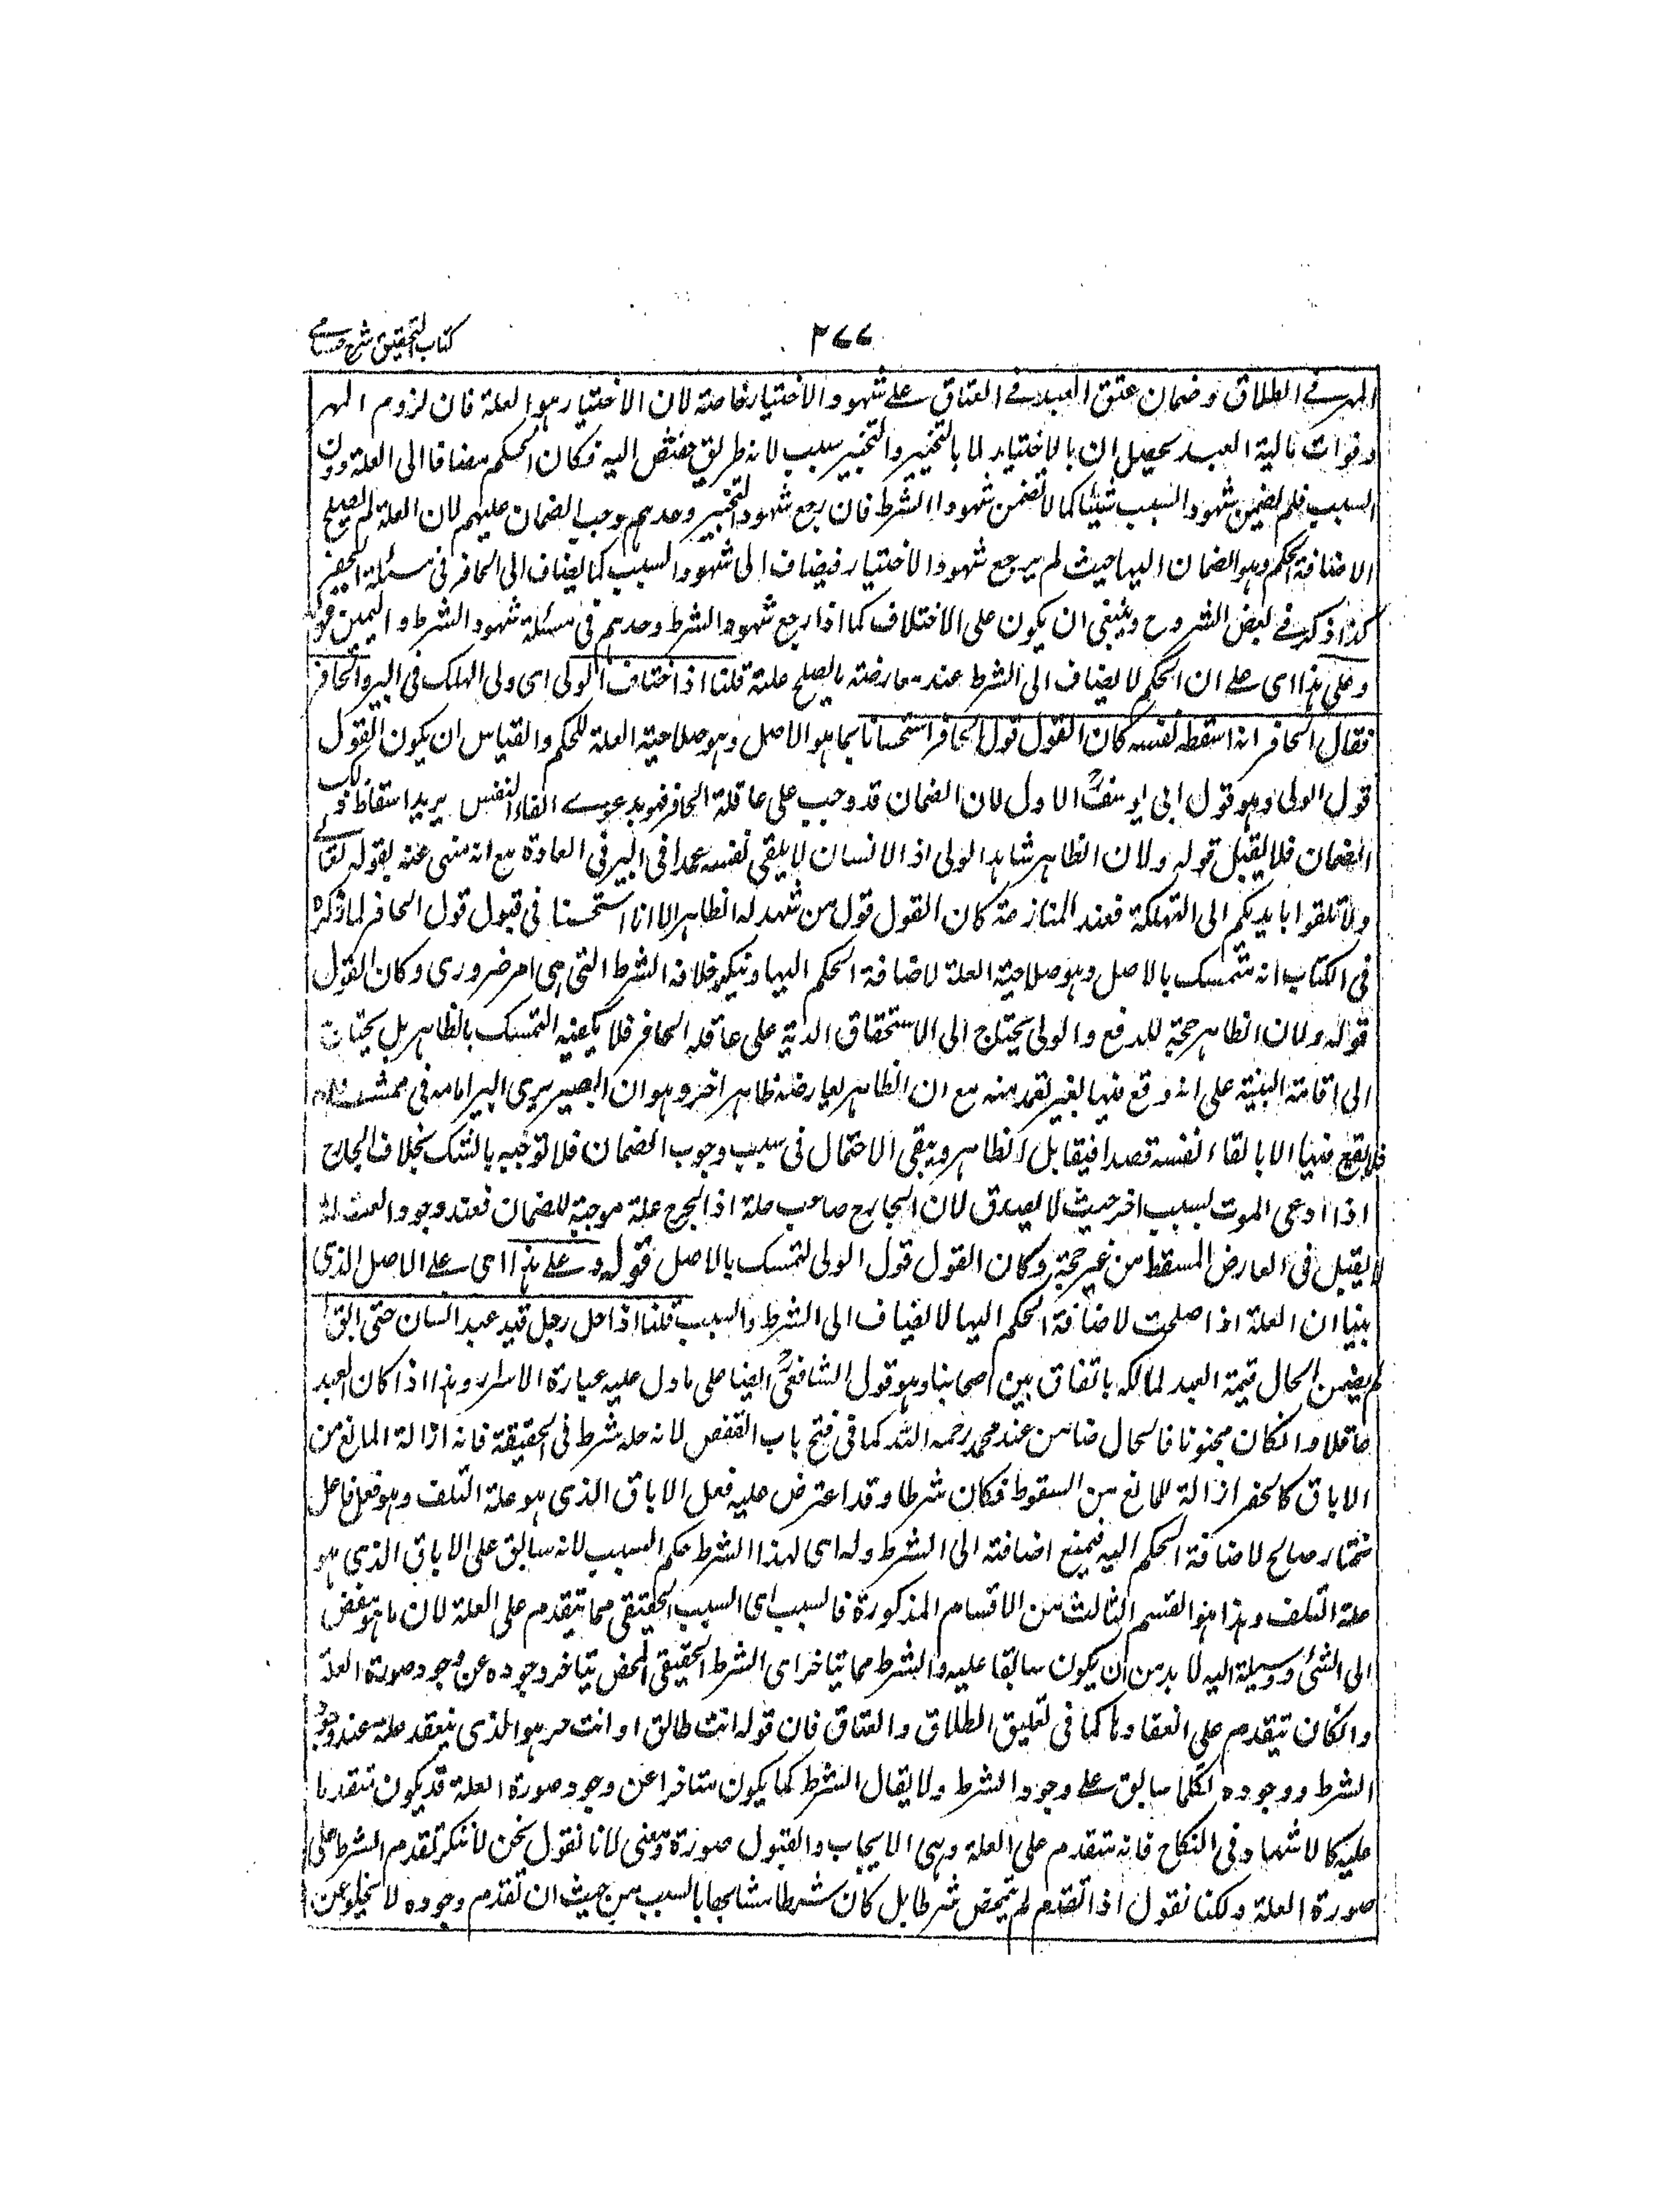 كتاب التحقيق شرح حسامي
٢٧٧
المهر في الطلاق وضمان عتق العبد في العتاق على شهود الاختيار خاصة لان الاختيار هو العلة فان لزوم المهر
وفوات مالية العبد يحصلان بالاختيار لا بالتخيير والتخيير سبب لانه طريق مفض اليه فكان الحكم مضافا الى العلة دون
السبب فلم يضمن شهود السبب شيئا كما لا تضمن شهود الشرط فان رجع شهود التخيير وحدهم وجب الضمان عليهم لان العلة لم تصلح
لاضافة الحكم وهو الضمان اليها حيث لم يرجع شهود الاختيار فيضاف الى شهود السبب كما يضاف الى الحافر في مسئلة الحفر
كذا ذكر في بعض الشروح وينبغي ان يكون على الاختلاف كما اذا رجع شهود الشرط وحدهم في مسئلة شهود الشرط واليمين قوله
وعلى هذا اى على ان الحكم لا يضاف الى الشرط عند معارضته ما يصلح علة قلنا اذا اختلف الولى اى ولى الهالك في البير والحافر
فقال الحافر انه اسقط نفسه كان القول قول الحافر استحسانا بما هو الاصل وهو صلاحية العلة للحكم والقياس ان يكون القول
قول الولى وهو قول ابى يوسف الاول لان الضمان قد وجب على عاقلة الحافر فهو بدعوى القاء النفس يريد اسقاط ذلك
الضمان فلا يقبل قوله ولان الظاهر شاهد الولى اذ الانسان لا يلقى نفسه عمدا في البير في العادة مع انه منهى عنه بقوله تعالى
ولا تلقوا بايديكم الى التهلكة فعند المنازعة كان القول قول من شهد له الظاهر الا انا استحسنا في قبول قول الحافر لما ذكره
في الكتاب انه تمسك بالاصل وهو صلاحية العلة لاضافة الحكم اليها وينكر خلافة الشرط التى هى امر ضرورى وكان القول
قوله ولان الظاهر حجة للدفع والولى يحتاج الى الاستحقاق الدية على عاقله الحافر فلا يكفيه التمسك بالظاهر بل يحتاج
الى اقامة البينة على انه وقع فيها بغير تعمد منه مع ان الظاهر يعارضه ظاهر اخر وهو ان البصير يرى البير امامه في ممشاه
فلا يقع فيها الا بالقاء نفسه قصدا فيقابل الظاهر ويبقى الاحتمال في سبب وجوب الضمان فلا توجبه بالشك بخلاف الجارح
اذا ادعى الموت بسبب اخر حيث لا يصدق لان الجارح صاحب علة اذ الجرح علة موجبة للضمان فعند وجود العلة
لا يقبل في العارض المسقط من غير حجة وكان القول قول الولى لتمسك بالاصل قوله وعلى هذا اى على الاصل الذى
بينا ان العلة اذا صلحت لاضافة الحكم اليها لا يضاف الى الشرط والسبب قلنا اذا حل رجل قيد عبد انسان حتى ابق
لم يضمن الحال قيمة العبد لمالكه باتفاق بين اصحابنا وهو قول الشافعى ايضا على ما دل عليه عبارة الاسرار وهذا اذا كان العبد
عاقلا وان كان مجنونا فالحال ضامن عند محمد رحمه الله كما في فتح باب القفص لانه حله شرط في الحقيقة فانه ازالة المانع من
الاباق كالحفر ازالة للمانع من السقوط فكان شرطا وقد اعترض عليه فعل الاباق الذى هو علة التلف وهو فعل فاعل
مختار صالح لاضافة الحكم اليه فيمنع اضافته الى الشرط وله اى لهذا الشرط حكم السبب لانه سابق على الاباق الذى هو
علة التلف وهذا هو القسم الثالث من الاقسام المذكورة فالسبب اى السبب الحقيقى مما يتقدم على العلة لان ما هو مفض
الى الشئ ووسيلة اليه لا بد من ان يكون سابقا عليه والشرط مما يتاخر اى الشرط الحقيقى المحض يتاخر وجوده عن وجود صورة العلة
وان كان يتقدم على انعقادها كما في تعليق الطلاق والعتاق فان قوله انت طالق او انت حر هو الذى ينعقد علة عند وجود
الشرط ووجوده تكلما سابق على وجود الشرط ولا يقال الشرط كما يكون متاخرا عن وجود صورة العلة قد يكون متقدما
عليه كالاشهاد في النكاح فانه متقدم على العلة وهى الايجاب والقبول صورة ومعنى لانا نقول نحن لا ننكر تقدم الشرط على
صورة العلة ولكنا نقول اذا تقدم لم يتمحض شرطا بل كان شرطا مشابها بالسبب من حيث ان تقدم وجوده لا يخلو عن